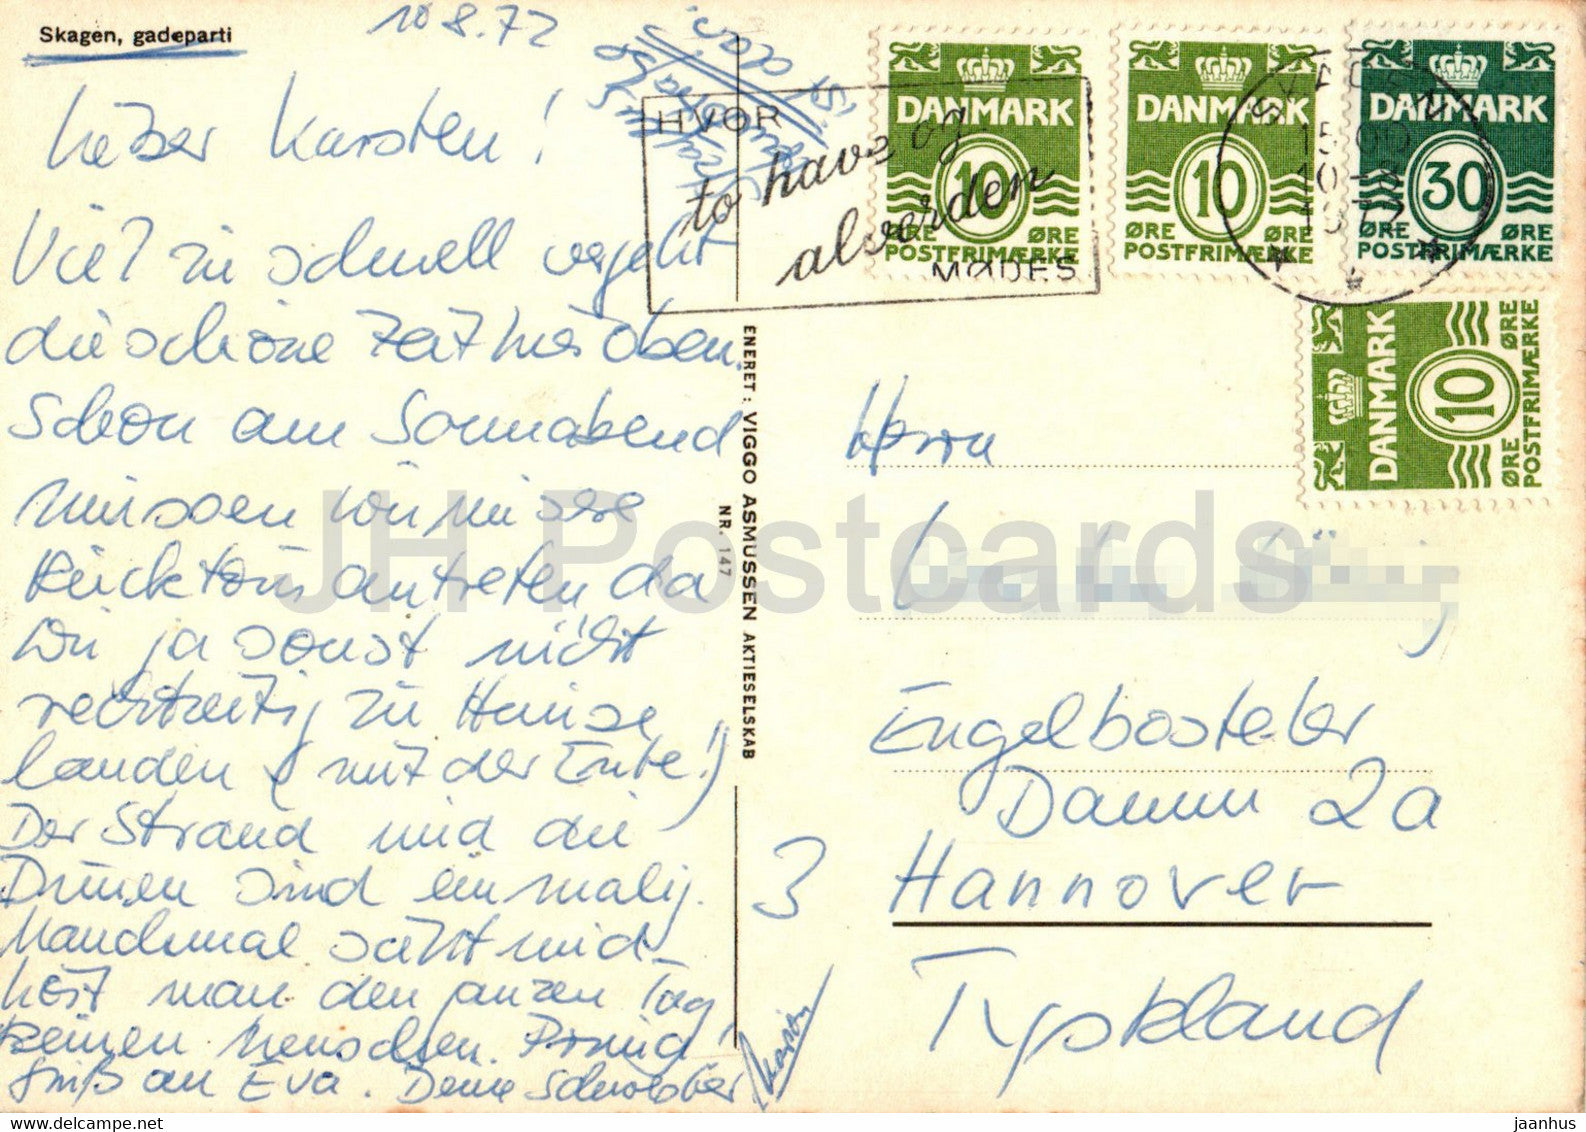 Skagen, gadeparti
10.8.72
Lieber Karsten!
Viel zu schnell vergeht
die schöne Zeit hier oben.
Schon am Sonnabend
müssen wir unsere
Rücktour antreten da
wir ja sonst nicht
rechtzeitig zu Hause
landen (mit der Ente!)
Der Strand und die
Dünen sind einmalig.
Manchmal sieht und
hört man den ganzen Tag
keinen Menschen. Prima!
Gruß an Eva. Deine Schwester
HVOR
to have og
alverden
MØDES
DANMARK
10
ØRE ØRE
POSTFRIMÆRKE
DANMARK
10
ØRE ØRE
POSTFRIMÆRKE
DANMARK
30
ØRE ØRE
POSTFRIMÆRKE
DANMARK
10
ØRE ØRE
POSTFRIMÆRKE
SKAGEN
15.00
10-8
1972
ENERET: VIGGO ASMUSSEN AKTIESELSKAB
NR. 147
Herrn
Engelbosteler
Damm 2a
3 Hannover
Tyskland
JH Postcards
https://www.delcampe.net
jaanhus